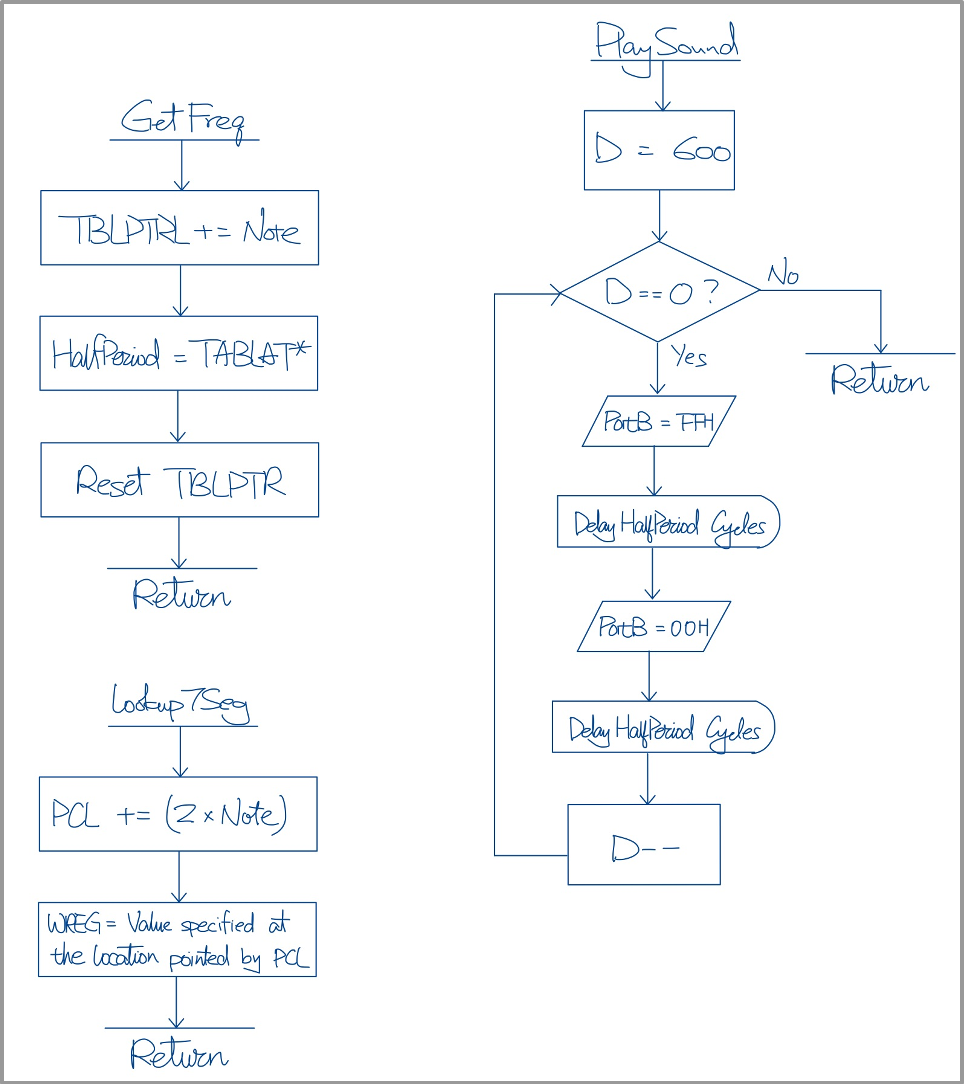 GetFreq
TBLPTRL += Note
HalfPeriod = TABLAT*
Reset TBLPTR
Return
Lookup7Seg
PCL += (2 × Note)
WREG = Value specified at
the location pointed by PCL
Return
PlaySound
D = 600
D==0?
No
Return
Yes
PortB = FFH
Delay HalfPeriod Cycles
PortB = 00H
Delay HalfPeriod Cycles
D--